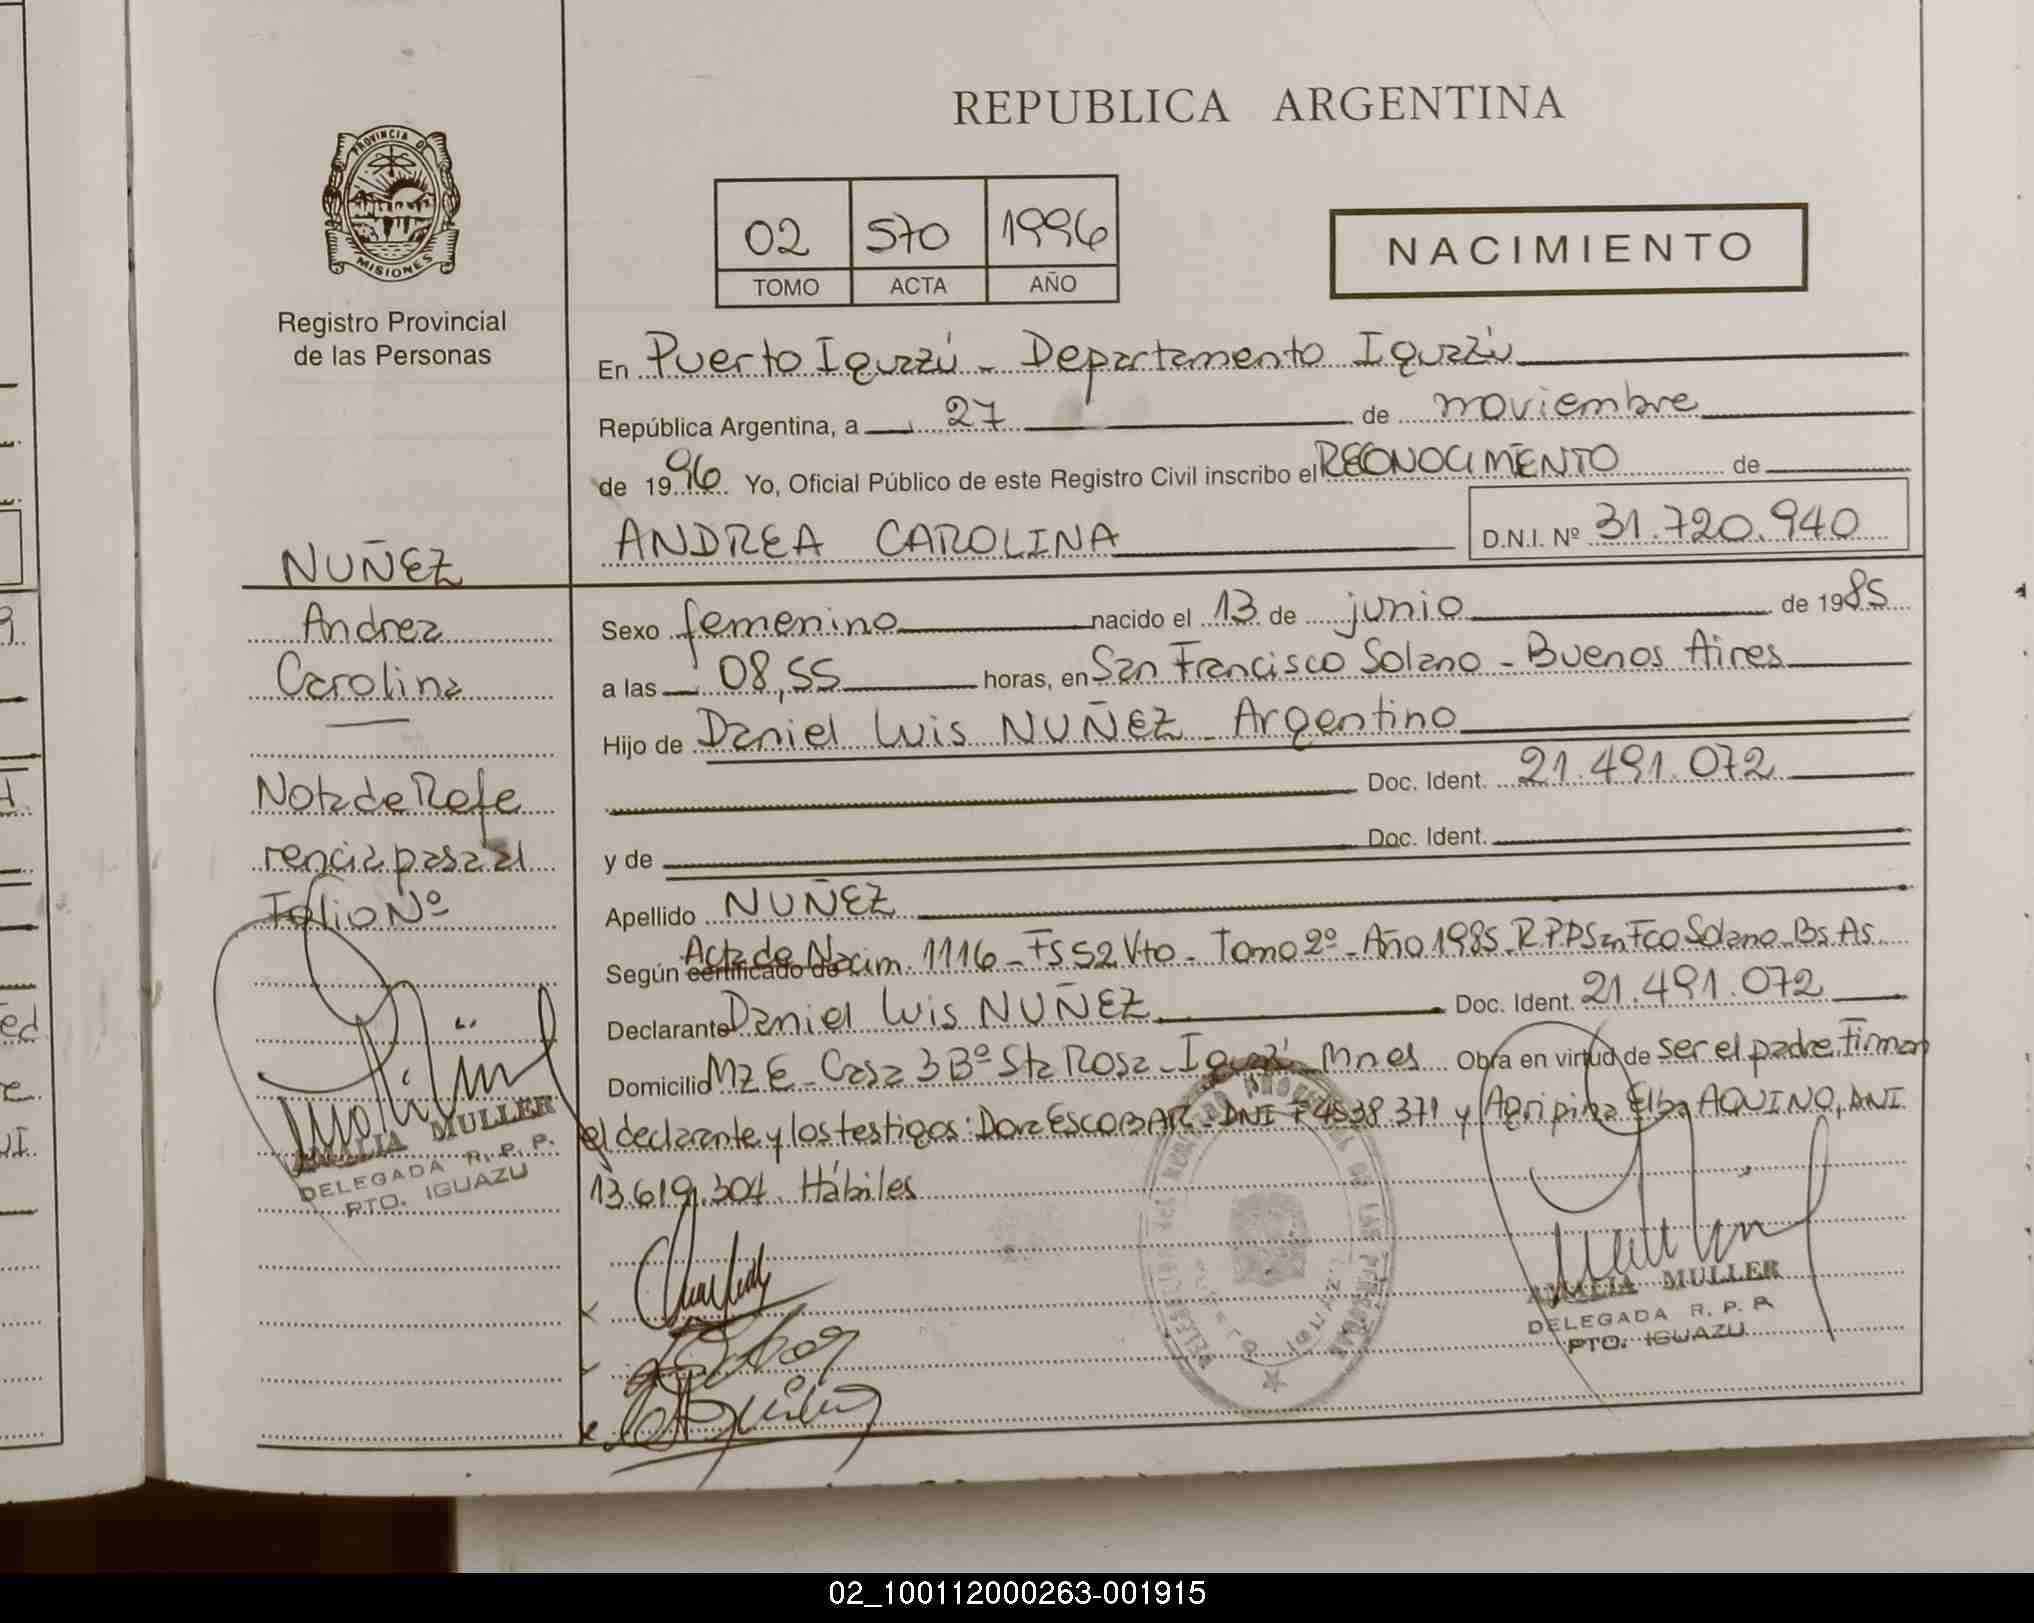 REPUBLICA ARGENTINA
PROVINCIA DE
MISIONES
Registro Provincial
de las Personas
02 570 1996
TOMO ACTA AÑO
NACIMIENTO
En Puerto Iguazú - Departamento Iguazú
República Argentina, a 27 de noviembre
de 1996 Yo, Oficial Público de este Registro Civil inscribo el RECONOCIMIENTO de
ANDREA CAROLINA D.N.I. Nº 31.720.940
NUÑEZ
Andrea
Carolina
Nota de Refe
rencia pasa al
Folio Nº
AMALIA MULLER
DELEGADA R. P. P.
PTO. IGUAZU
Sexo femenino nacido el 13 de junio de 1985
a las 08,55 horas, en San Francisco Solano - Buenos Aires
Hijo de Daniel Luis NUÑEZ - Argentino
Doc. Ident. 21.491.072
y de Doc. Ident.
Apellido NUÑEZ
Según certificado de Acta de Nacim. 1116 - Fs 52 Vto - Tomo 2º - Año 1985 - R.P.P San Fco Solano - Bs. As.
Declarante Daniel Luis NUÑEZ Doc. Ident. 21.491.072
Domicilio Mz E - Casa 3 Bº Sta Rosa - Iguazú Mnes Obra en virtud de ser el padre Firman
el declarante y los testigos: Dora ESCOBAR - DNI F 4538371 y Agripina Elba AQUINO, DNI
13.619.304. Hábiles
AMALIA MULLER
DELEGADA R. P. P.
PTO. IGUAZU
02_100112000263-001915